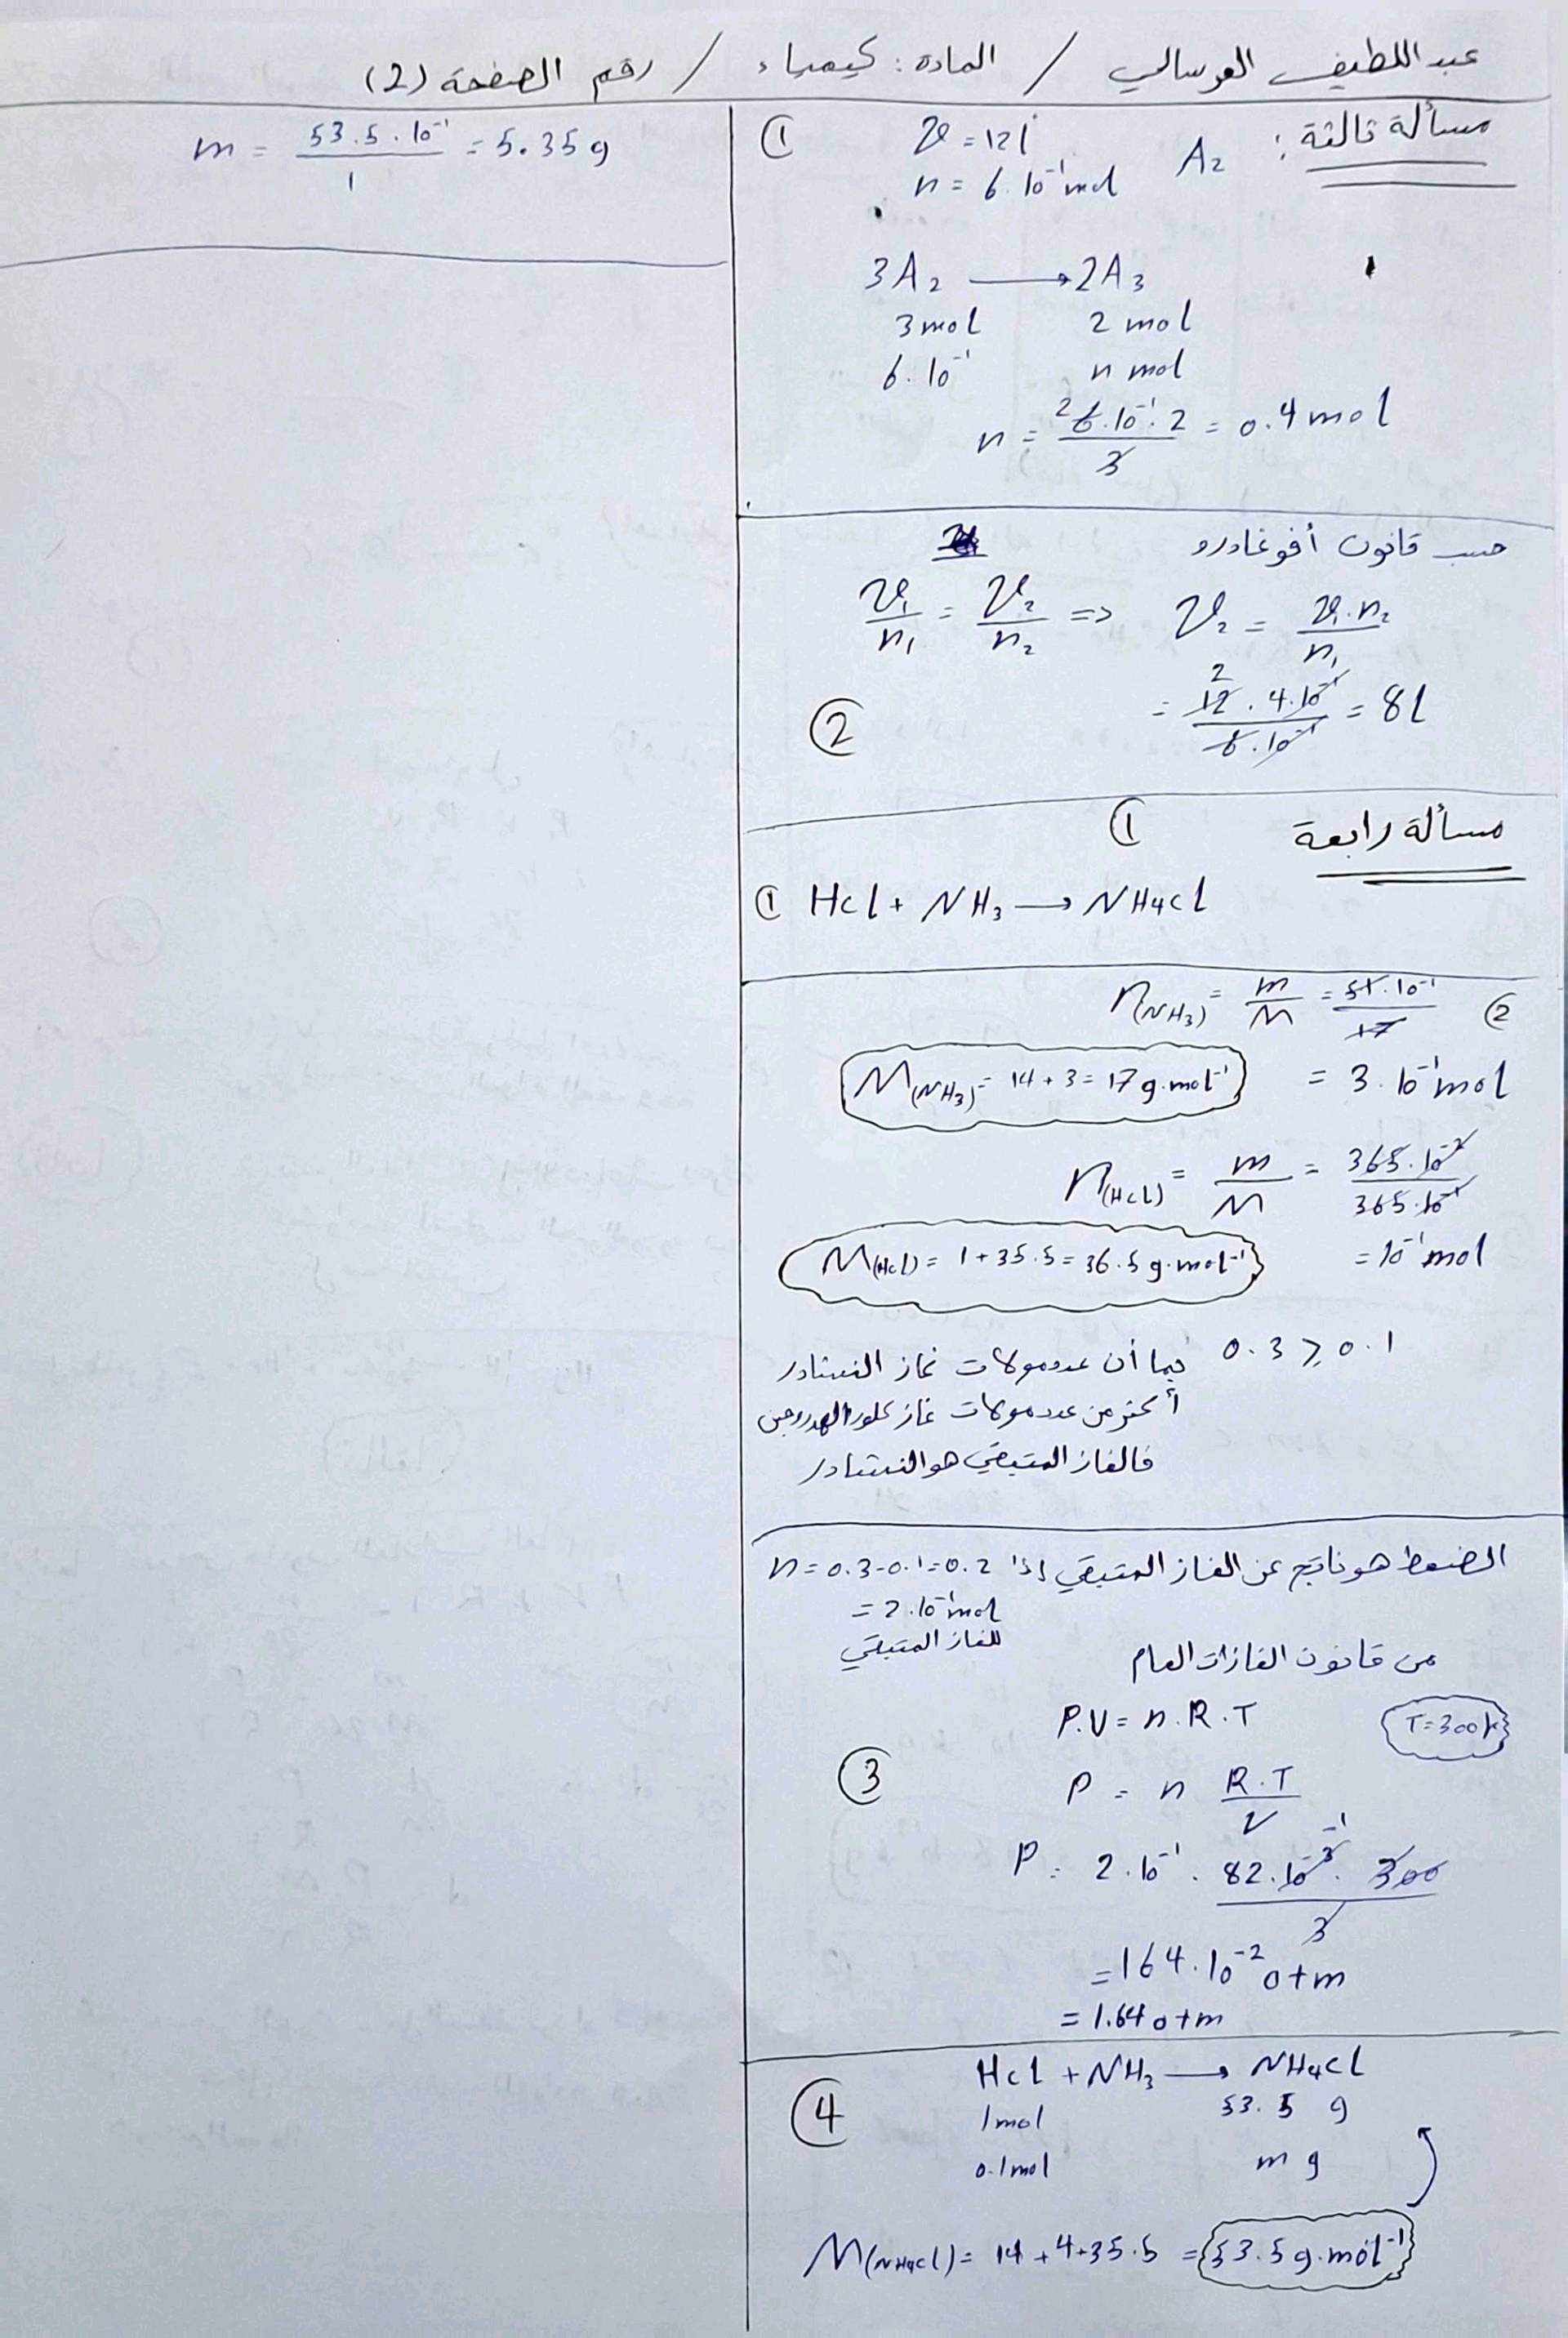 عبد اللطيف العرسالي / المادة : كيمياء / رقم الصفحة (2)
مسألة ثالثة :
① V = 12 l A₂
n = 6 . 10⁻¹ mol
3A₂ → 2A₃
3 mol 2 mol
6 . 10⁻¹ n mol
n = 2 6 . 10⁻¹ . 2 / 3 = 0.4 mol
حسب قانون أفوغادرو
V₁ / n₁ = V₂ / n₂ => V₂ = V₁ . n₂ / n₁
② = 2 12 . 4 . 10⁻¹ / 6 . 10⁻¹ = 8 l
مسألة رابعة ①
① HCl + NH₃ → NH₄Cl
② n(NH₃) = m / M = 51 . 10⁻¹ / 17
M(NH₃) = 14 + 3 = 17 g.mol⁻¹ = 3 . 10⁻¹ mol
n(HCl) = m / M = 365 . 10⁻² / 365 . 10⁻¹
M(HCl) = 1 + 35.5 = 36.5 g.mol⁻¹ = 10⁻¹ mol
0.3 > 0.1 بما أن عدد مولات غاز النشادر
أكثر من عدد مولات غاز كلور الهدروجين
فالغاز المتبقي هو النشادر
الضغط هو ناتج عن الغاز المتبقي إذا n = 0.3 - 0.1 = 0.2
= 2 . 10⁻¹ mol
للغاز المتبقي
من قانون الغازات العام
P.V = n . R . T T = 300 K
③ P = n R . T / V
P = 2 . 10⁻¹ . 82 . 10⁻³ ⁻¹ . 300 / 3
= 164 . 10⁻² atm
= 1.64 atm
④ HCl + NH₃ → NH₄Cl
1 mol 53.5 g
0.1 mol m g
M(NH₄Cl) = 14 + 4 + 35.5 = 53.5 g.mol⁻¹
m = 53.5 . 10⁻¹ / 1 = 5.35 g